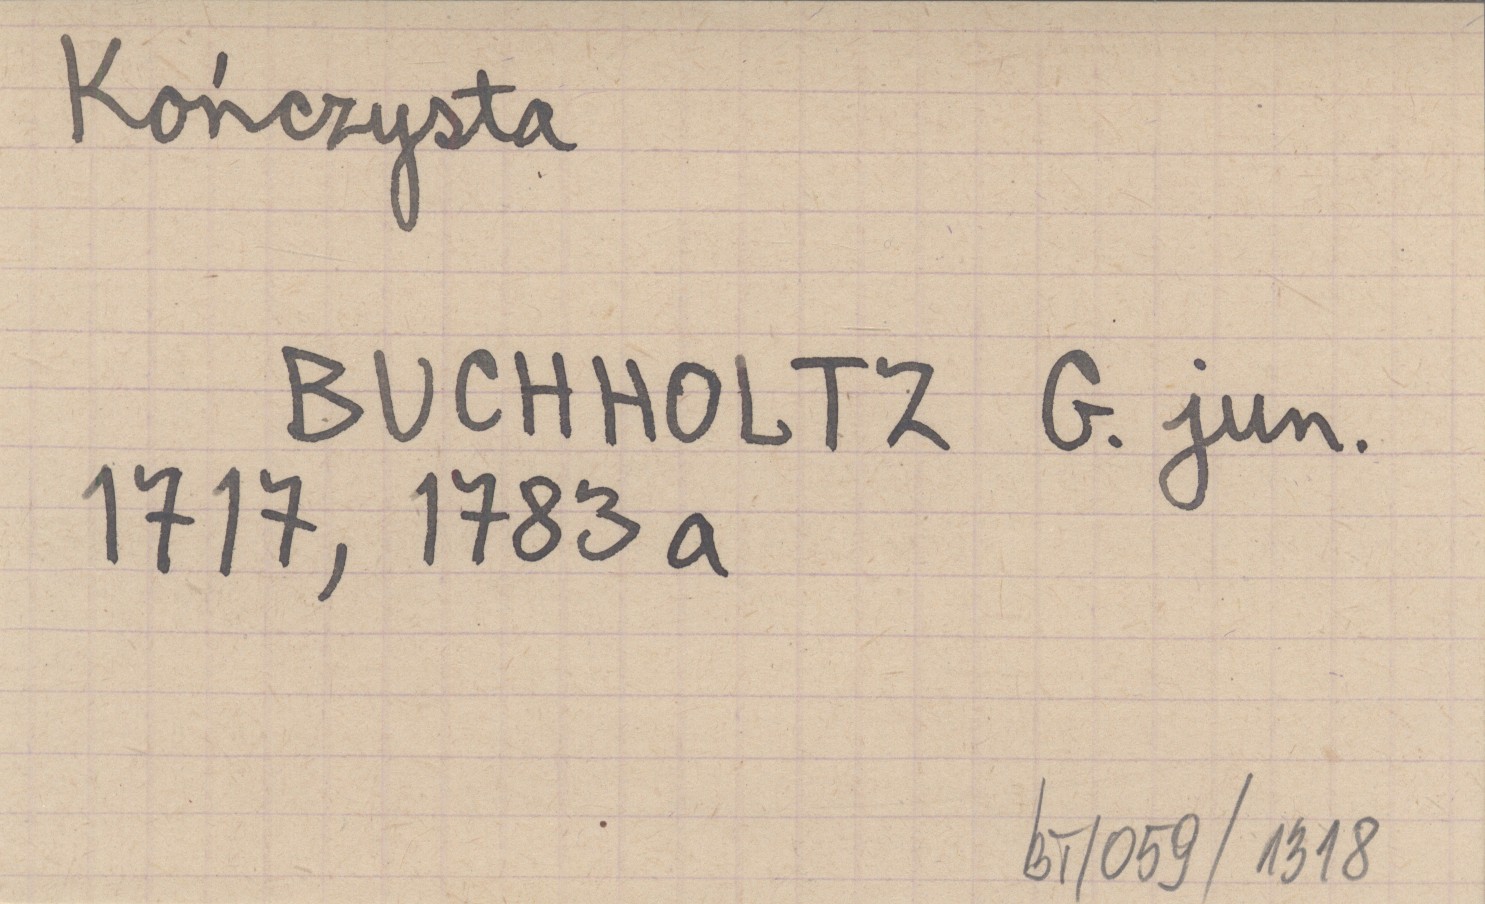 Kończysta
BUCHHOLTZ G. jun.
1717, 1783 a
BT/059/1318